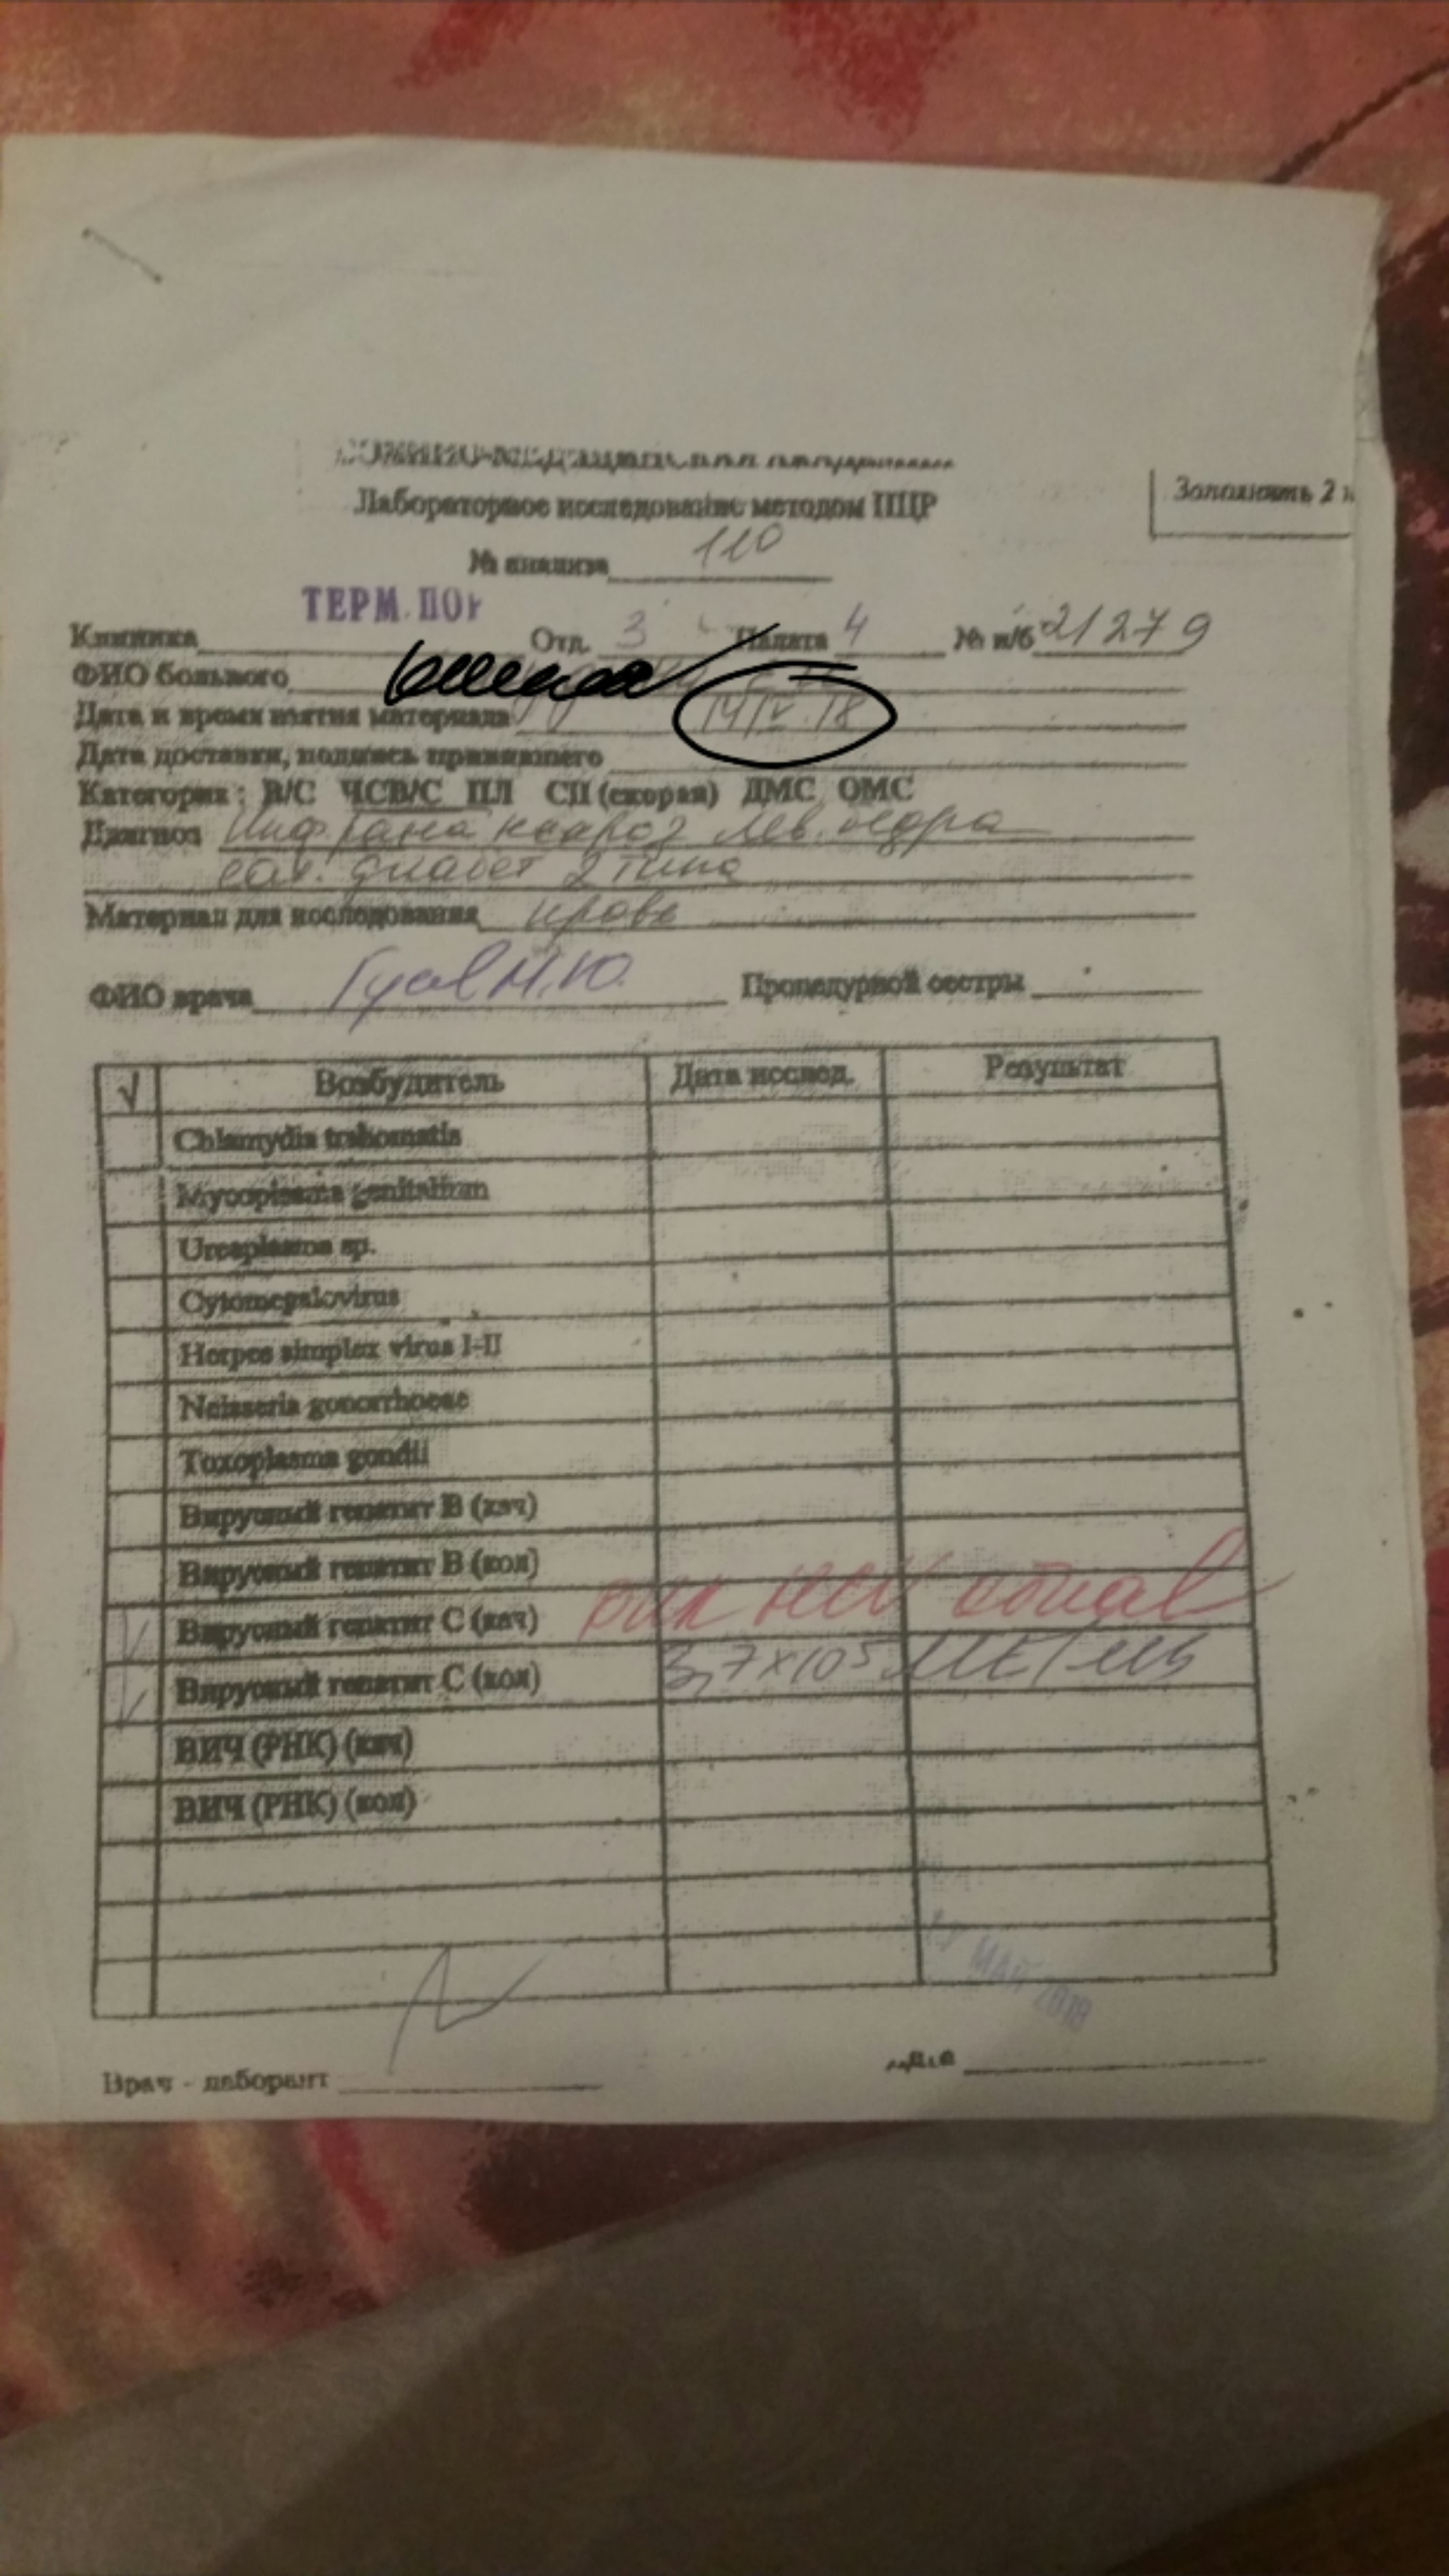 Лабораторное исследование методом ПЦР
Заполнять 2
№ анализа 110
ТЕРМ. ПОР
Клиника Отд. 3 Палата 4 № и/б 21279
ФИО больного
Дата и время взятия материала 14/IV.18
Дата доставки, подпись принявшего
Категория: В/С ЧСВ/С ПЛ СП (скорая) ДМС ОМС
Диагноз лев. бедра
сах. диабет 2 типа
Материал для исследования кровь
ФИО врача М.Ю. Процедурной сестры
√ Возбудитель Дата исслед. Результат
Chlamydia trahomatis
Mycoplasma genitalium
Ureaplasma sp.
Cytomegalovirus
Herpes simplex virus I-II
Neisseria gonorrhoeae
Toxoplasma gondii
Вирусный гепатит В (кач)
Вирусный гепатит В (кол)
Вирусный гепатит С (кач) РНК HCV
Вирусный гепатит С (кол) 3,7×10⁵ МЕ/мл
ВИЧ (РНК) (кач)
ВИЧ (РНК) (кол)
МАЙ 2018
Врач - лаборант